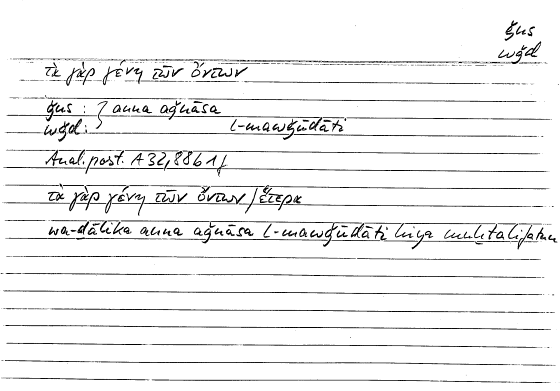 ǧns
wǧd
τὰ γὰρ γένη τῶν ὄντων
ǧns : } anna aǧnāsa
wǧd : l-mawǧūdāti
Anal. post. A 32, 88b1f
τὰ γὰρ γένη τῶν ὄντων / ἕτερα
wa-ḏālika anna aǧnāsa l-mawǧūdāti hiya muḫtalifatun